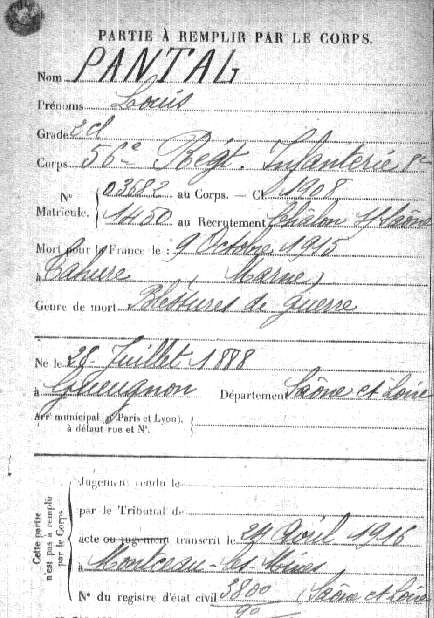 PARTIE À REMPLIR PAR LE CORPS.
Nom PANTAL
Prénoms Louis
Grade 2d
Corps 56e Régt. Infanterie
N° Matricule. 03682 au Corps. — Cl. 1908
1450 au Recrutement Chalon s/Saône
Mort pour la France le : 9 Octobre 1915
à Tahure (Marne)
Genre de mort Blessures de guerre
Né le 28 Juillet 1888
à Gueugnon Département Saône et Loire
Arr municipal (Paris et Lyon),
à défaut rue et N°.
Cette partie n'est pas à remplir par le Corps
Jugement rendu le
par le Tribunal de
acte ou jugement transcrit le 24 Avril 1916
à Montceau-les-Mines
N° du registre d'état civil 3800/90 (Saône et Loire